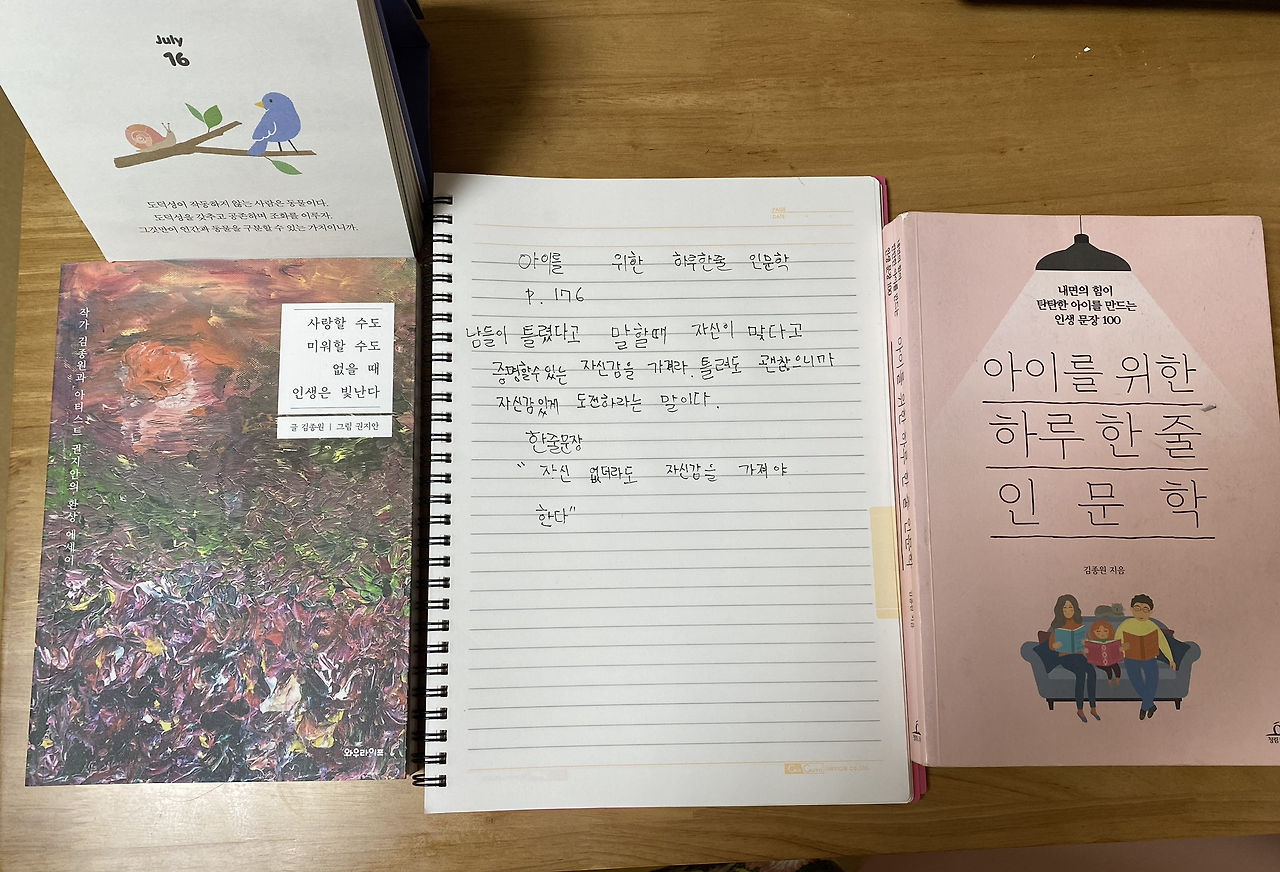 July
16
도덕성이 작동하지 않는 사람은 동물이다.
도덕성을 갖추고 공존하며 조화를 이루자.
그것만이 인간과 동물을 구분할 수 있는 가치이니까.
작가 김종원과 아티스트 권지안의 환상 에세이
사랑할 수도
미워할 수도
없을 때
인생은 빛난다
글 김종원 | 그림 권지안
와우라이프
아이를 위한 하루한줄 인문학
p. 176
남들이 틀렸다고 말할때 자신이 맞다고
증명할수있는 자신감을 가져라. 틀려도 괜찮으니까
자신감있게 도전하라는 말이다.
한줄문장
"자신 없더라도 자신감을 가져야
한다"
아이를 위한 하루 한 줄 인문학
김종원 지음
내면의 힘이
탄탄한 아이를 만드는
인생 문장 100
아이를 위한
하루 한 줄
인문학
김종원 지음